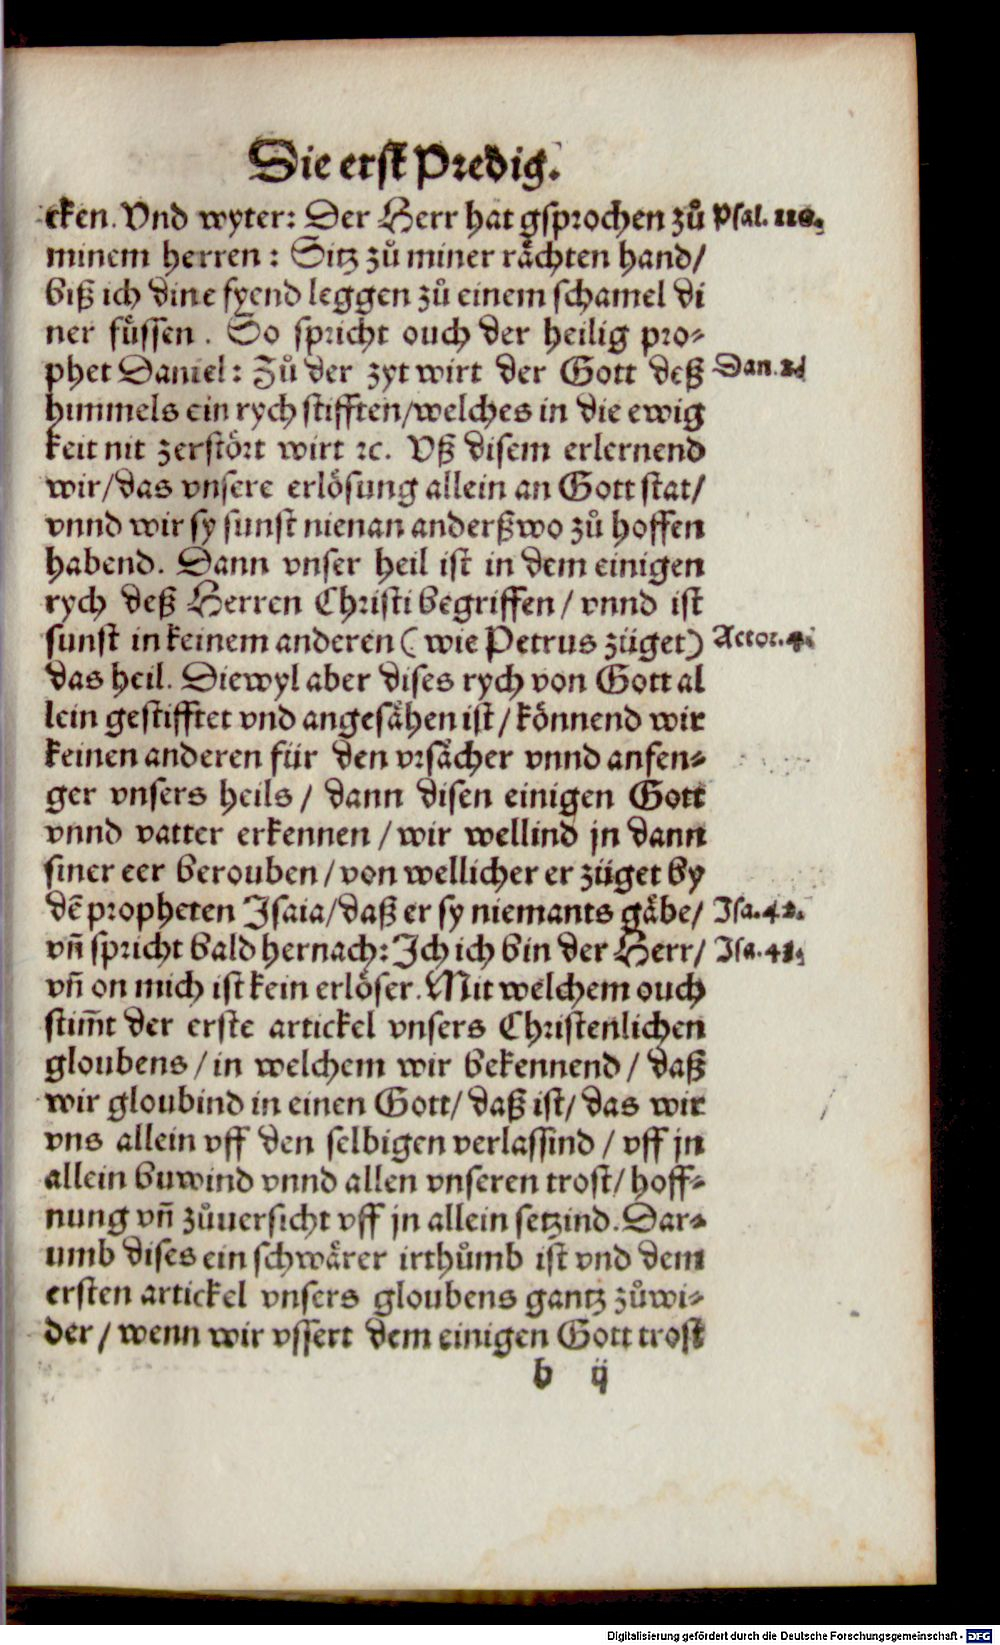 Die erst Predig.
cken. Vnd wyter: Der Herr hat gsprochen zů Psal. 110.
minem herren: Sitz zů miner rächten hand/
biß ich dine fyend leggen zů einem schamel di
ner füssen. So spricht ouch der heilig pro-
phet Daniel: Zů der zyt wirt der Gott deß Dan. 2.
himmels ein rych stifften/welches in die ewig
keit nit zerstört wirt ꝛc. Vß disem erlernend
wir/das vnsere erlösung allein an Gott stat/
vnnd wir sy sunst nienan anderßwo zů hoffen
habend. Dann vnser heil ist in dem einigen
rych deß Herren Christi begriffen/ vnnd ist
sunst in keinem anderen (wie Petrus züget) Actor. 4.
das heil. Diewyl aber dises rych von Gott al
lein gestifftet vnd angesähen ist/ könnend wir
keinen anderen für den vrsächer vnnd anfen-
ger vnsers heils/ dann disen einigen Gott
vnnd vatter erkennen/ wir wellind jn dann
siner eer berouben/ von wellicher er züget by
dē propheten Isaia/daß er sy niemants gäbe/ Isa. 42.
vn̄ spricht bald hernach: Ich ich bin der Herr/ Isa. 43.
vn̄ on mich ist kein erlöser. Mit welchem ouch
stim̄t der erste artickel vnsers Christenlichen
gloubens/ in welchem wir bekennend/ daß
wir gloubind in einen Gott/ daß ist/ das wir
vns allein vff den selbigen verlassind/ vff jn
allein buwind vnnd allen vnseren trost/ hoff-
nung vn̄ zůuersicht vff jn allein setzind. Dar-
umb dises ein schwärer irthůmb ist vnd dem
ersten artickel vnsers gloubens gantz zůwi-
der/ wenn wir vssert dem einigen Gott trost
b ij
Digitalisierung gefördert durch die Deutsche Forschungsgemeinschaft - DFG